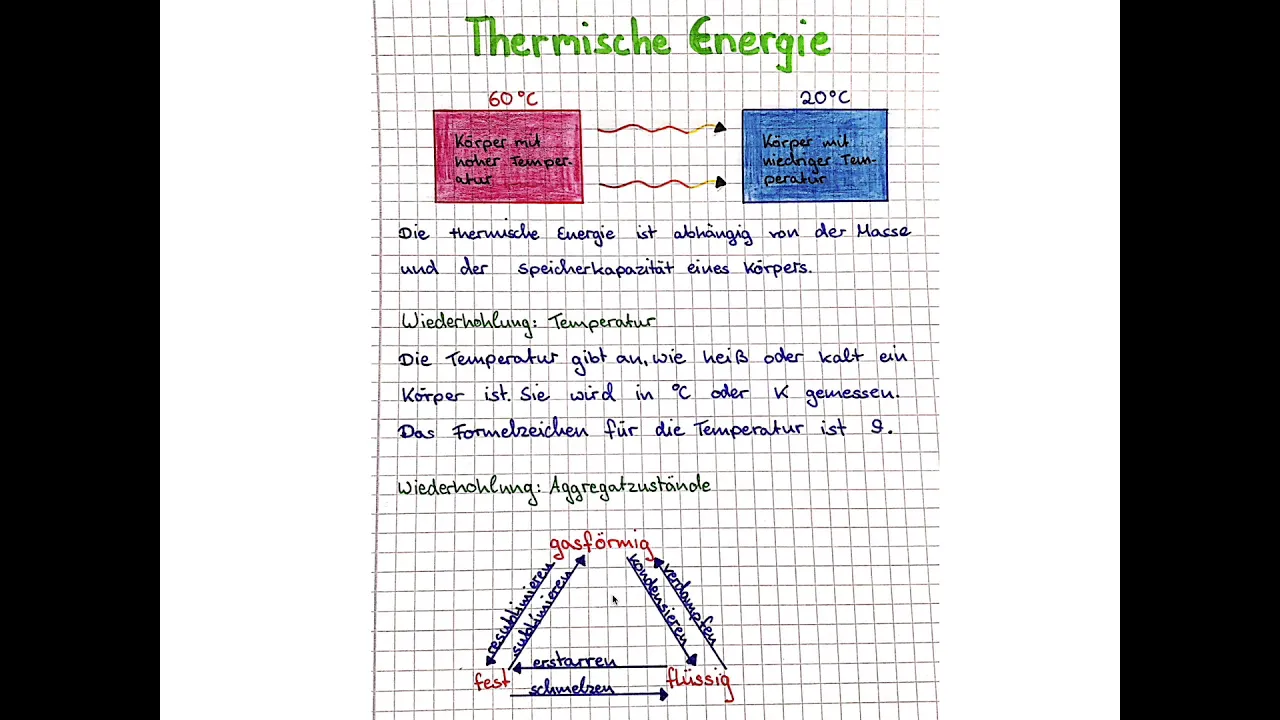 Thermische Energie
60°C
20°C
Körper mit
hoher Temper-
atur
Körper mit
niedriger Tem-
peratur
Die thermische Energie ist abhängig von der Masse
und der Speicherkapazität eines Körpers.
Wiederhohlung: Temperatur
Die Temperatur gibt an, wie heiß oder kalt ein
Körper ist. Sie wird in °C oder K gemessen.
Das Formelzeichen für die Temperatur ist ϑ.
Wiederhohlung: Aggregatzustände
gasförmig
resublimieren
sublimieren
kondensieren
verdampfen
erstarren
fest
flüssig
schmelzen